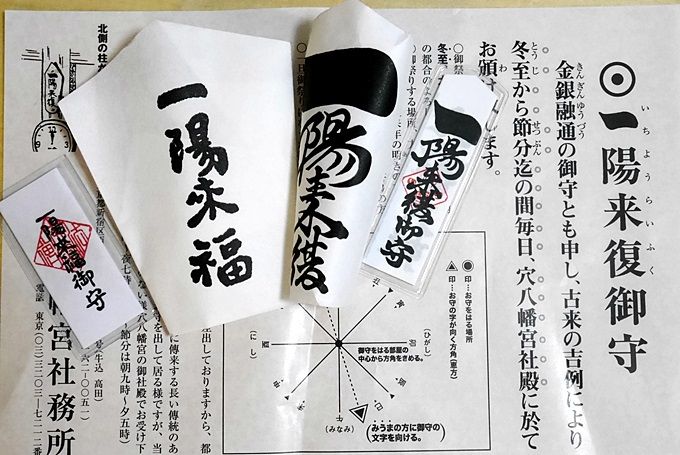 ⦿一陽来復御守
いちようらいふく
金銀融通の御守とも申し、古来の吉例により
きんぎんゆうづう
冬至から節分迄の間毎日、穴八幡宮社殿に於て
とうじ
せつぶん
お頒
わ
します。
○御祭
冬至
の都合のよる
○御祭りする場所、
来年の明きの
北側の柱か
一陽来福
一陽来復
一陽来復御守
一陽来福御守
⦿印…お守をはる場所
▲印…お守の字が向く方角(恵方)
御守をはる部屋の
中心から方角をきめる。
(ひがし)
(にし)
(みなみ)
みうまの方に御守の
文字を向ける。
出しておりますから、都
に傳来する長い傳統のあ
等を出して居る様ですが、当
ない様穴八幡宮の御社殿でお受け下
節分は朝九時~夕五時
幡宮社務所
電話 東京(〇三)三二〇三-七二一二番